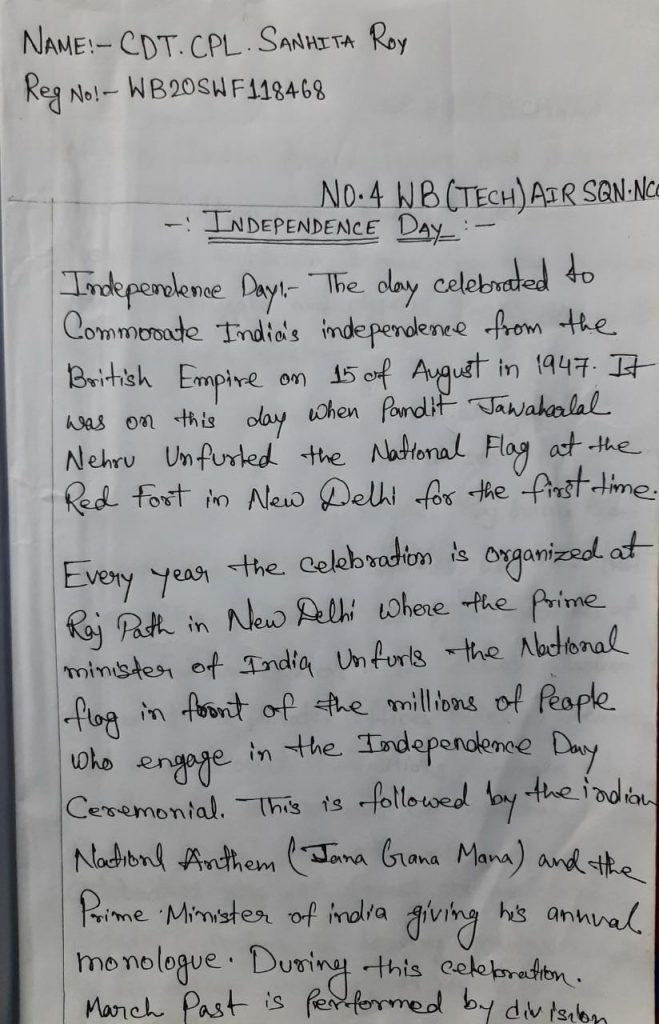 NAME:- CDT. CPL. SANHITA ROY
Reg No:- WB20SWF118468
NO.4 WB (TECH) AIR SQN. NCC
-: INDEPENDENCE DAY :-
Independence Day:- The day celebrated to
Commorate India's independence from the
British Empire on 15 of August in 1947. It
was on this day when Pandit Jawaharlal
Nehru Unfurled the National Flag at the
Red Fort in New Delhi for the first time.
Every year the celebration is organized at
Raj Path in New Delhi where the Prime
minister of India Unfurls the National
flag in front of the millions of People
who engage in the Independence Day
Ceremonial. This is followed by the indian
National Anthem (Jana Gana Mana) and the
Prime Minister of india giving his annual
monologue. During this celebration.
March Past is performed by division